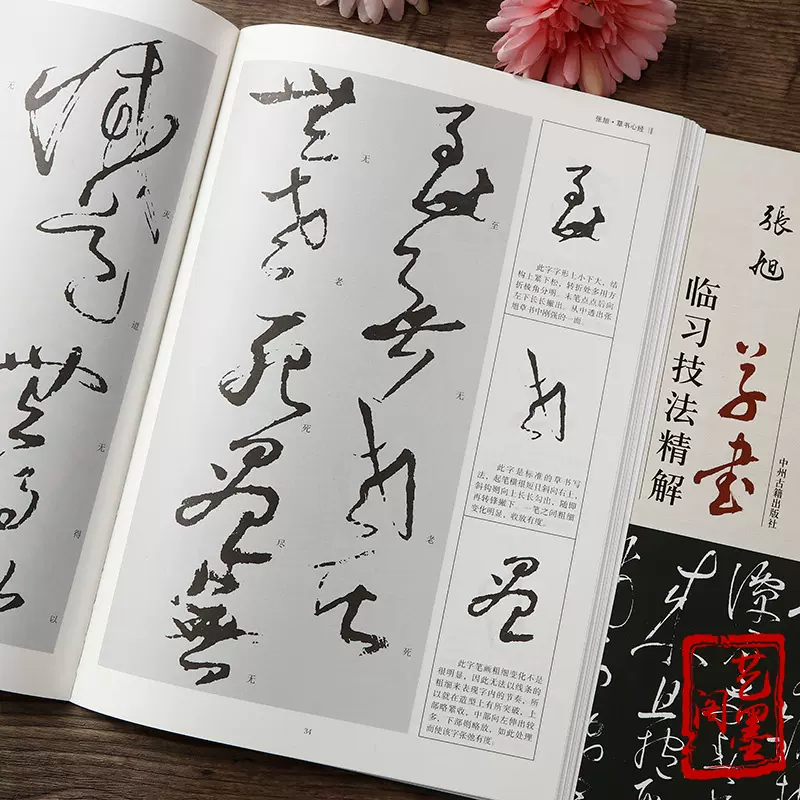 张旭·草书心经
至
无
老
死
无
老
死
尽
无
此字字形上小下大，结
构上紧下松，转折处多用方
折棱角分明。末笔点点后向
左下长长撇出。从中透出张
旭草书中刚强的一面。
此字是标准的草书写
法，起笔横很短且斜向右上，
斜钩则向上长长勾出，随即
再转锋撇下。一笔之间粗细
变化明显，收放有度。
此字笔画粗细变化不是
很明显，因此无法以线条的
粗细来表现字内的节奏，所
以就在造型上有所突破，上
部略紧收，中部向左伸出较
多，下部则略放，如此处理
而使该字张弛有度。
34
灭
道
无
得
以
无
張旭
草书
临习技法精解
中州古籍出版社
艺墨阁